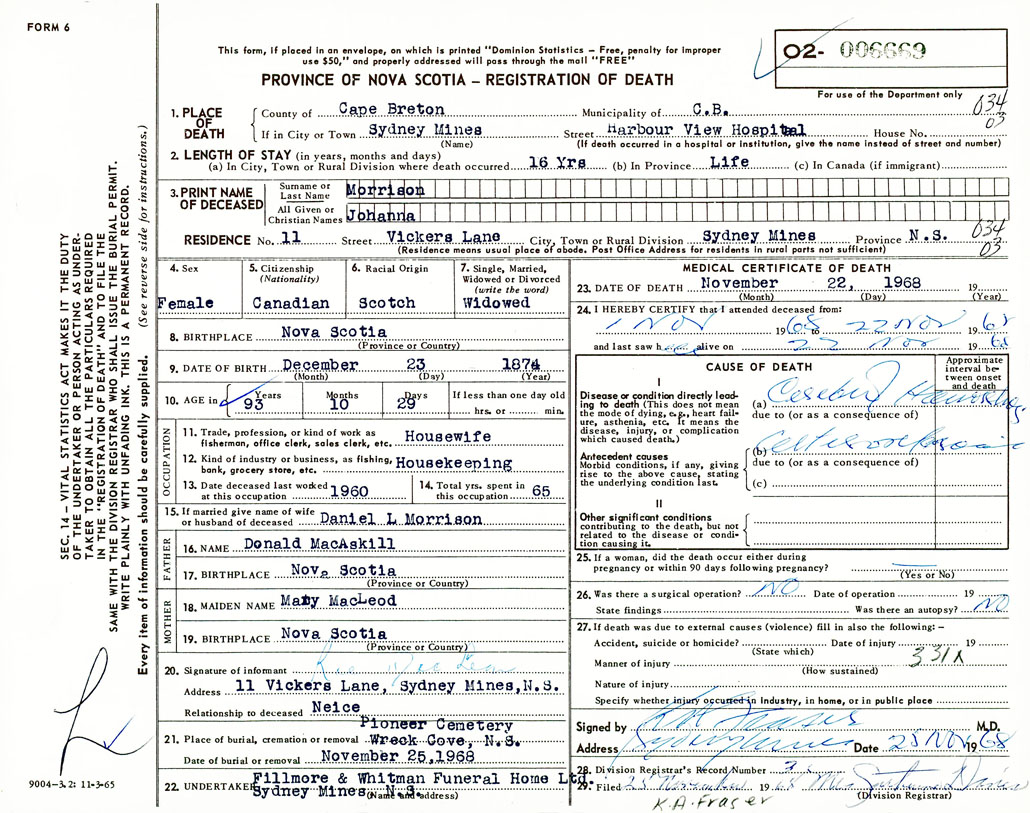 FORM 6
This form, if placed in an envelope, on which is printed "Dominion Statistics – Free, penalty for improper
use $50," and properly addressed will pass through the mail "FREE"
PROVINCE OF NOVA SCOTIA – REGISTRATION OF DEATH
02- 006669
For use of the Department only
034
03
1. PLACE OF DEATH
County of Cape Breton Municipality of C.B.
If in City or Town Sydney Mines Street Harbour View Hospital House No.
(Name) (If death occurred in a hospital or institution, give the name instead of street and number)
2. LENGTH OF STAY (in years, months and days)
(a) In City, Town or Rural Division where death occurred 16 Yrs (b) In Province Life (c) In Canada (if immigrant)
3. PRINT NAME OF DECEASED
Surname or Last Name Morrison
All Given or Christian Names Johanna
RESIDENCE No. 11 Street Vickers Lane City, Town or Rural Division Sydney Mines Province N.S.
034
03
(Residence means usual place of abode. Post Office Address for residents in rural parts not sufficient)
4. Sex
Female
5. Citizenship
(Nationality)
Canadian
6. Racial Origin
Scotch
7. Single, Married,
Widowed or Divorced
(write the word)
Widowed
8. BIRTHPLACE Nova Scotia
(Province or Country)
9. DATE OF BIRTH December 23 1874
(Month) (Day) (Year)
10. AGE in Years Months Days If less than one day old
93 10 29 hrs. or min.
OCCUPATION
11. Trade, profession, or kind of work as
fisherman, office clerk, sales clerk, etc. Housewife
12. Kind of industry or business, as fishing,
bank, grocery store, etc. Housekeeping
13. Date deceased last worked
at this occupation 1960
14. Total yrs. spent in
this occupation 65
15. If married give name of wife
or husband of deceased Daniel L Morrison
FATHER
16. NAME Donald MacAskill
17. BIRTHPLACE Nova Scotia
(Province or Country)
MOTHER
18. MAIDEN NAME Mary MacLeod
19. BIRTHPLACE Nova Scotia
(Province or Country)
20. Signature of informant
Address 11 Vickers Lane, Sydney Mines, N.S.
Relationship to deceased Neice
Pioneer Cemetery
21. Place of burial, cremation or removal Wreck Cove, N.S.
Date of burial or removal November 25,1968
22. UNDERTAKER Fillmore & Whitman Funeral Home Ltd.
Sydney Mines, N.S.
(Name and address)
MEDICAL CERTIFICATE OF DEATH
23. DATE OF DEATH November 22, 1968 19
(Month) (Day) (Year)
24. I HEREBY CERTIFY that I attended deceased from:
1 NOV 1968 to 22 NOV 1968
and last saw her alive on 22 Nov 1968
CAUSE OF DEATH
Approximate
interval be-
tween onset
and death
I
Disease or condition directly lead-
ing to death (This does not mean
the mode of dying, e.g., heart fail-
ure, asthenia, etc. It means the
disease, injury, or complication
which caused death.)
(a)
due to (or as a consequence of)
Antecedent causes
Morbid conditions, if any, giving
rise to the above cause, stating
the underlying condition last.
(b)
due to (or as a consequence of)
(c)
II
Other significant conditions
contributing to the death, but not
related to the disease or condi-
tion causing it.
25. If a woman, did the death occur either during
pregnancy or within 90 days following pregnancy?
(Yes or No)
26. Was there a surgical operation? NO Date of operation 19
State findings Was there an autopsy? NO
27. If death was due to external causes (violence) fill in also the following: –
Accident, suicide or homicide? Date of injury 19
(State which)
Manner of injury 331X
(How sustained)
Nature of injury
Specify whether injury occurred in industry, in home, or in public place
Signed by M.D.
Address Sydney Mines Date 25 NOV 1968
28. Division Registrar's Record Number
29. Filed 25 November 1968
(Division Registrar)
K.A. Fraser
SEC. 14 – VITAL STATISTICS ACT MAKES IT THE DUTY
OF THE UNDERTAKER OR PERSON ACTING AS UNDER-
TAKER TO OBTAIN ALL THE PARTICULARS REQUIRED
IN THE "REGISTRATION OF DEATH" AND TO FILE THE
SAME WITH THE DIVISION REGISTRAR WHO SHALL ISSUE THE BURIAL PERMIT.
WRITE PLAINLY WITH UNFADING INK. THIS IS A PERMANENT RECORD.
Every item of information should be carefully supplied. (See reverse side for instructions.)
9004–3.2: 11-3-65